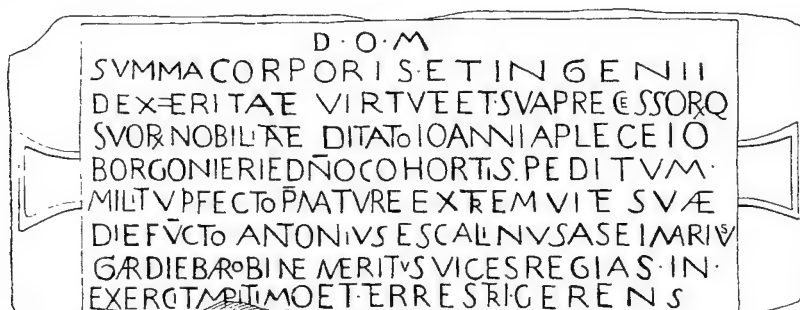 D·O·M
SVMMA CORPORIS·ET INGENII
DEXTERITATE VIRTVTE ET·SVAPRECESSORQ
SVOR NOBILITATE DITATO IOANNI APLECEIO
BORGONIERIEDÑO COHORTIS·PEDITVM·
MILITV PFECTO P̄MATVRE EXTREM VITE SVÆ
DIE FV̄CTO ANTONIVS ESCALINVS ASEIMARIVS
GARDIE BARO BINE MERITVS VICES REGIAS·IN·
ET·TERRESTRI·GERENS